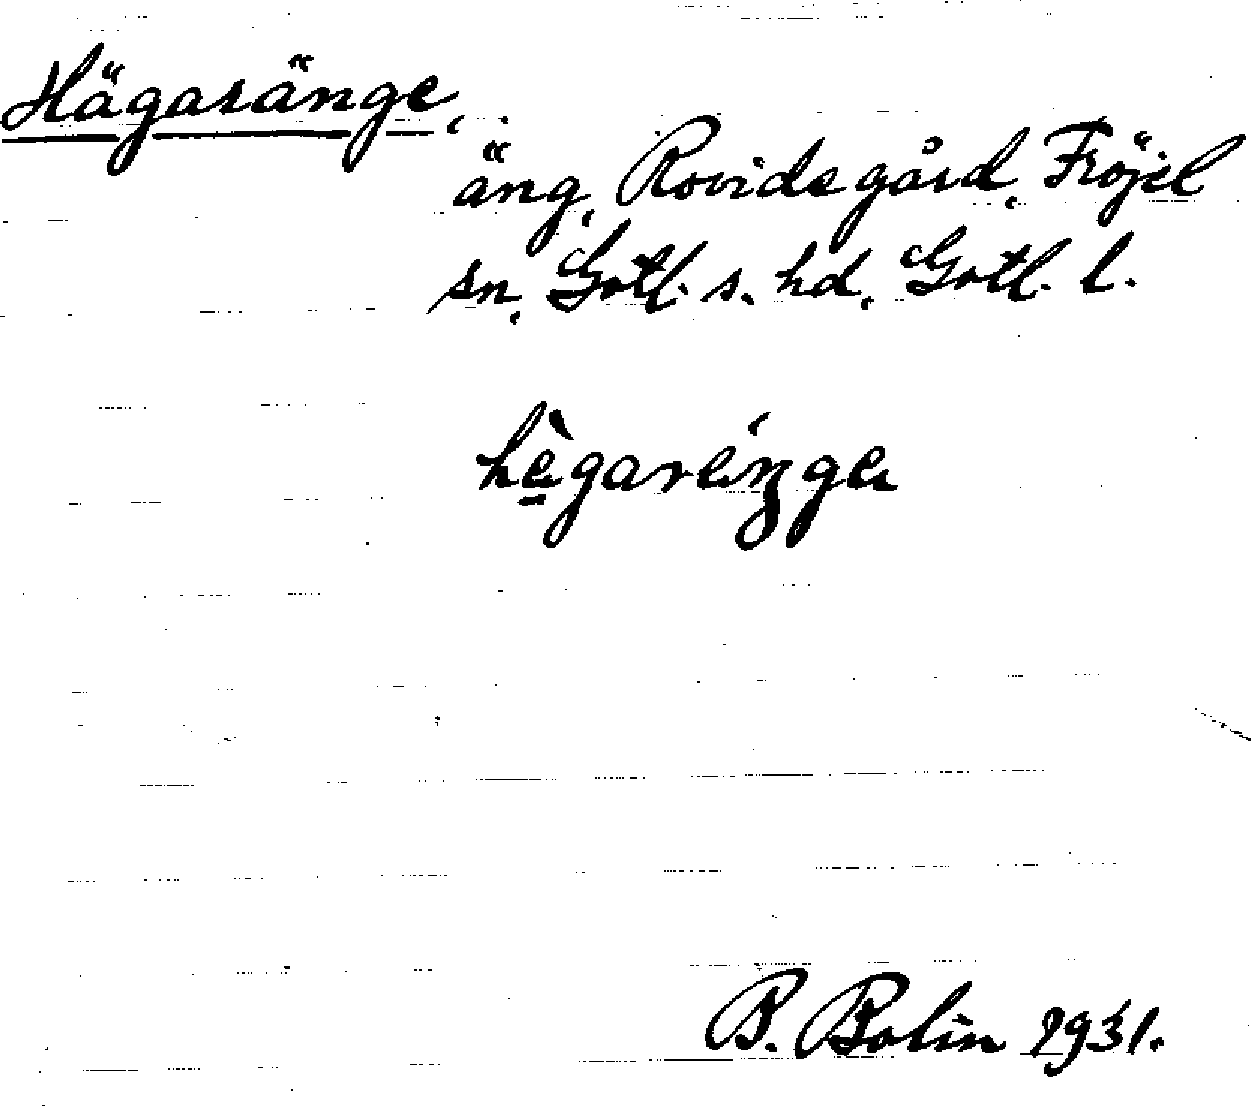 Hägasänge,
äng, Rovidegård, Fröjel
sn, Gotl. s. hd, Gotl. l.
hègaréŋge
B. Bolin 1931.